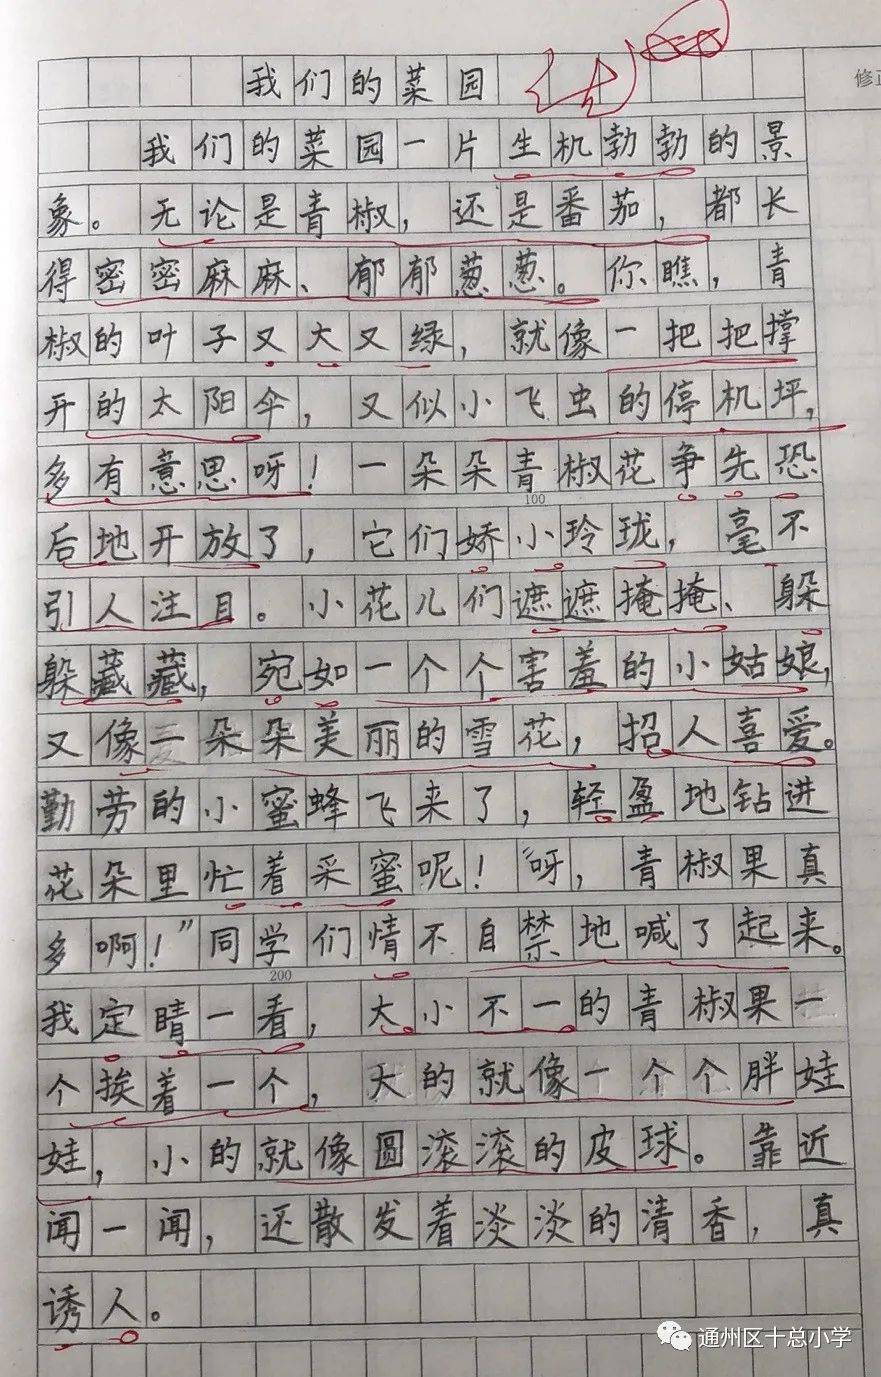 我们的菜园
修正
我们的菜园一片生机勃勃的景
象。无论是青椒，还是番茄，都长
得密密麻麻、郁郁葱葱。你瞧，青
椒的叶子又大又绿，就像一把把撑
开的太阳伞，又似小飞虫的停机坪，
多有意思呀！一朵朵青椒花争先恐
100
后地开放了，它们娇小玲珑，毫不
引人注目。小花儿们遮遮掩掩、躲
躲藏藏，宛如一个个害羞的小姑娘，
又像一朵朵美丽的雪花，招人喜爱。
勤劳的小蜜蜂飞来了，轻盈地钻进
花朵里忙着采蜜呢！“呀，青椒果真
多啊！”同学们情不自禁地喊了起来。
200
我定睛一看，大小不一的青椒果一
个挨着一个，大的就像一个个胖娃
娃，小的就像圆滚滚的皮球。靠近
闻一闻，还散发着淡淡的清香，真
诱人。
通州区十总小学